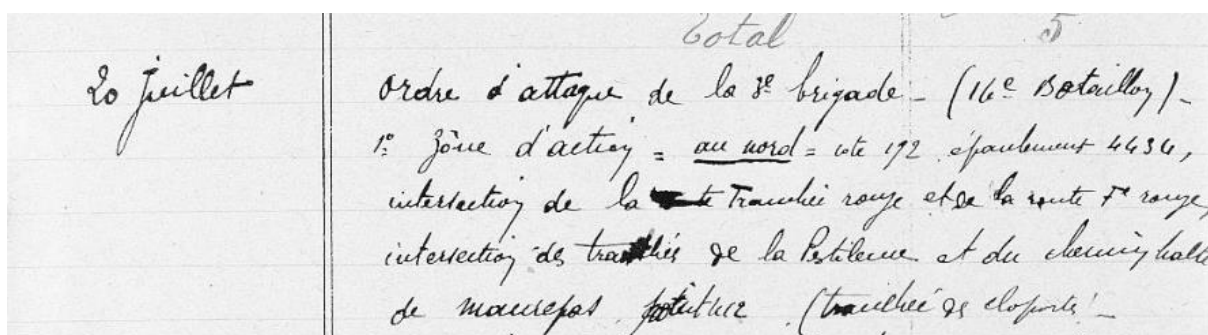 Total 5
20 Juillet
Ordre d'attaque de la 3e brigade - (16e Bataillon) -
1º Zône d'action = au nord = cote 172 épaulement 4434,
intersection de la Tranchée rouge et de la route Fe rouge,
intersection des tranchées de la Pestilence et du chemin halte
de maurepas point 412 (tranchée des cloportes)